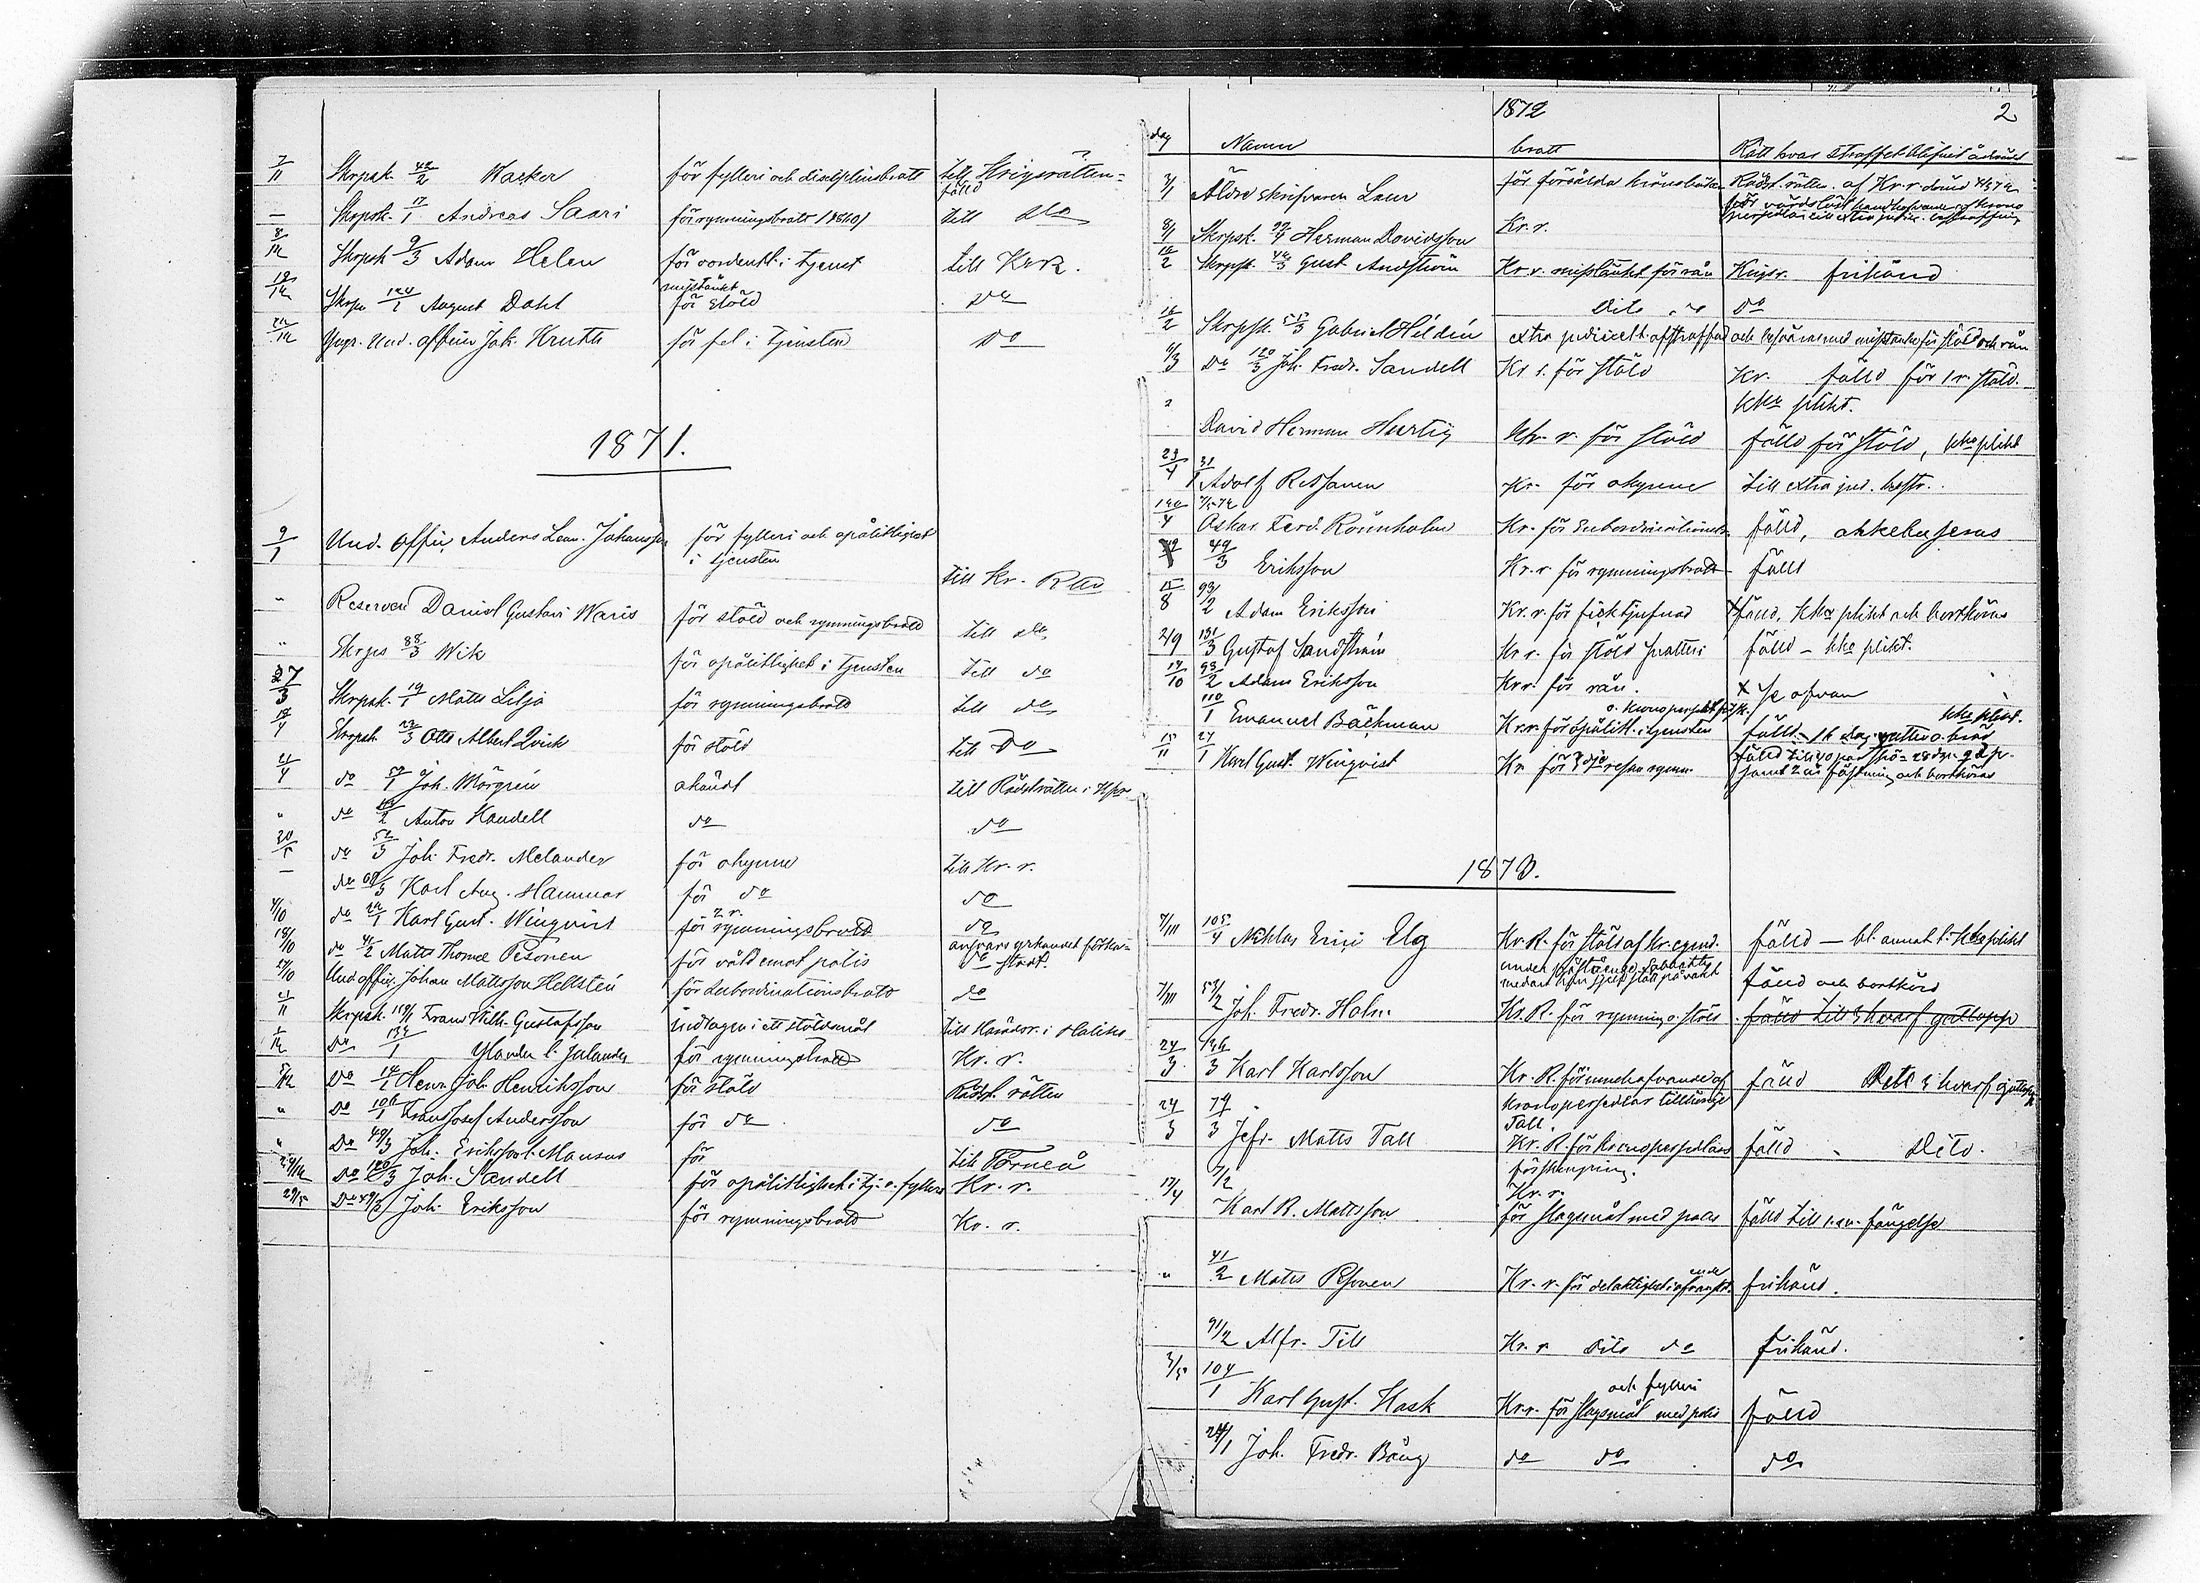 7/11 Skrpsk. 42/2 Wacker för fylleri och disciplinsbrott till Krigsrätten = fälld
— Skrpsk. 17/1 Andreas Saari för rymningsbrott till do
8/12 Skrpsk 9/3 Adam Helen för oordentl. i tjenst till KrR.
19/12 Skrpsk 124/1 August Dahl misstänkt för stöld do
22/12 Yngr. Und. officer Joh. Kruth för fel i tjensten do
1871.
9/1 Und. offic. Anders Leon. Johansson för fylleri och opålitlighet i tjensten till Kr. Rtten
" Reserven Daniel Gustav Waris för stöld och rymningsbrott till do
" Skrps 88/3 Wik för opålitlighet i tjensten till do
27/3 Skrpsk. 19/1 Matts Lilja för rymningsbrott till do
18/4 Skrpsk. 23/3 Otto Albert Qvick för stöld till do
21/4 do 59/1 Joh. Mörgren okändt till Rådsträtten i Hfors
" do /2 Anton Handell do do
30/5 do 52/3 Joh. Fredr. Melander för ohynne till Kr. r.
— do 68/3 Karl Aug. Hammar för do do
4/10 do 24/1 Karl Gust. Winqvist för 2 r. rymningsbrott do
18/10 do 41/2 Matts Thomas Pesonen för våld emot polis ansvars yrkandet förkastadt.
27/10 Und offic. Johan Mattsson Hellsten för subordinationsbrott do
2/11 Skrpsk. 110/1 Frans Wilh. Gustafsson indragen i ett stöldsmål till Häradsr. i Haliko
1/12 do 134/1 Ylander l. Julander för rymningsbrott Kr. r.
5/12 do 14/1 Henr. Joh. Henriksson för stöld Rådst. rätten
" do 106/1 Frans Josef Andersson för do do
" do 49/3 Joh. Eriksson l. Mansus för till Torneå
24/12 do 120/3 Joh. Sandell för opålitlighet i tj. o. fylleri Kr. r.
29/5 do 49/3 Joh. Eriksson för rymningsbrott Kr. r.
1872 2
dag Namn brott Rätt hvar straffet blifvit ådömdt
3/1 Äldre skrifvaren Laur för försålda kronokläder Rådst. rätten. af Kr. r. dömd
för vårdslöst handhafvande af krono
persedlar till extra judic. bestraffning
8/1 Skrpsk. Herman Davidsson Kr. r.
12/2 Skrpsk. 42/3 Gust. Andström Kr. r. misstänkt för rån Krigsr. frikänd
Dito do do
16/2 Skrpsk. 55/3 Gabriel Hildén extra judicielt afstraffad och besvärad med misstanke för stöld och rån
11/3 do 120/3 Joh. Fredr. Sandell Kr. r. för stöld Kr. fälld för 1 r. stöld. kka plikt.
David Herman Hurtig Kr. r. för stöld fälld för stöld, kka plikt
23/4 31/1 Adolf Reijonen Kr. för ohynne till extra jud. bestr.
4 Oskar Ferd. Rönnholm Kr. för Subordinationsbr. fälld, ankeluseras
49/3 Eriksson Kr. r för rymningsbrott fälld
15/8 93/2 Adam Eriksson Kr. r. för ficktjufnad fälld, kka plikt och bortköras
2/9 131/3 Gustaf Sandström Kr. r. för stöld fälld – kka plikt.
14/10 93/2 Adam Eriksson Kr. r. för rån. x se ofvan
110/1 Emanuel Bäckman Kr. r. för opålitl. i tjensten kka plikt. fälld – 16 dag. vatten o. bröd
15/11 24/1 Karl Gust. Winqvist Kr. för 3dje resan rymn. fälld till 40 par spö = 28 dgr.
samt 2 års fästning och bortköras
1873.
7/III 105/4 Niklas Erici Elg Kr. R. för stöld af kr. egend. fälld – bl. annat t. kka plikt
fälld och bortkörd
7/III 53/2 Joh. Fredr. Holm Kr. R. för rymning o. stöld fälld till 4 hvarf gatlopp
24/3 136/3 Karl Karlsson Kr. R. för innehafvande af kronopersedlar tillhörige Tall. fälld
24/3 74/3 Jefr. Matts Tall Kr. R. för kronopersedlars förskingring. fälld Dito.
17/4 7/2 Karl R. Mattsson Kr. r. för slagsmål med polis fälld till fängelse
" 41/2 Matts Pesonen Kr. r. för delaktighet i ofvanst. frikänd.
91/2 Alfr. Till Kr. r Dito do frikänd.
3/5 104/1 Karl Gust. Hask Kr. r. för slagsmål med polis och fylleri fälld
24/1 Joh. Fredr. Bång do do do